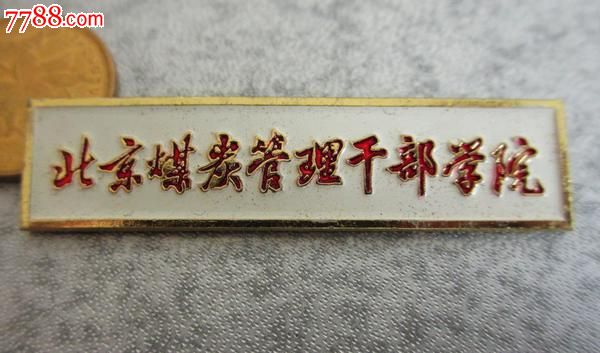 7788.com
北京煤炭管理干部学院